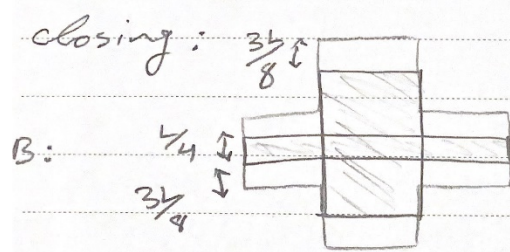 closing: 3L/8
B: L/4
3L/8